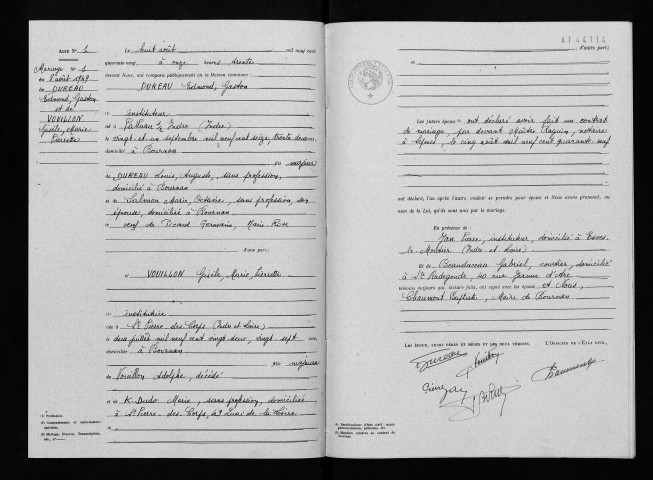 ACTE N° 1
Mariage N° 1
du 8 août 1949
DUREAU
Edmond, Gaston
et de
VOUILLON
Gisèle, Marie
Pierrette
(1) Profession.
(2) Consentements et autorisations spéciales.
(3) Mariage, Divorce, Transcription, etc.
Le huit août mil neuf cent
quarante neuf, à onze heures trente
devant Nous, ont comparu publiquement en la Maison commune :
DUREAU Edmond, Gaston
(1) instituteur
né à Indre (Indre)
le vingt et un septembre mil neuf cent seize, trente deux ans,
domicilié à Bournan
majeur
de DUREAU Louis, Auguste, sans profession,
domicilié à Bournan
et de Salmon Marie, Octavie, sans profession, son
épouse, domiciliée à Bournan
veuf de Picard Germaine, Marie-Rose
d'une part;
et VOUILLON Gisèle, Marie, Pierrette
(1) institutrice
née à St Pierre des Corps (Indre et Loire)
le deux juillet mil neuf cent vingt deux, vingt sept ans,
domiciliée à Bournan
majeure
de Vouillon Adolphe, décédé
et de K. Dudo Marie, sans profession, domiciliée
à St Pierre des Corps, 49 Quai de la Loire
d'autre part;
Les futurs époux ont déclaré avoir fait un contrat
de mariage, par devant Maître Raguin, notaire
le cinq août mil neuf cent quarante neuf
ont déclaré, l'un après l'autre, vouloir se prendre pour époux et Nous avons prononcé, au
nom de la Loi, qu'ils sont unis par le mariage.
En présence de :
Jan Pierre, instituteur, domicilié à Esves
le Moutier (Indre et Loire)
et de Beauduceau Gabriel, courtier, domicilié
à Ste Radegonde, 40 rue Jeanne d'Arc
témoins majeurs qui, lecture faite, ont signé avec les époux et Nous,
Chaumont Baptiste, Maire de Bournan
LES ÉPOUX, LEURS PÈRES ET MÈRES ET LES DEUX TÉMOINS,
L'OFFICIER DE L'ÉTAT CIVIL,
Dureau
G. Vouillon
Pierre Jan
Chaumont